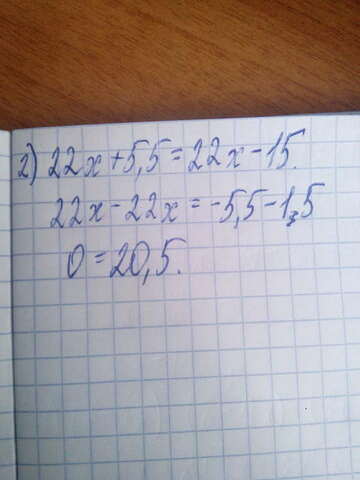 2) 22x+5,5=22x-15.
22x-22x=-5,5-1,5
0=20,5.